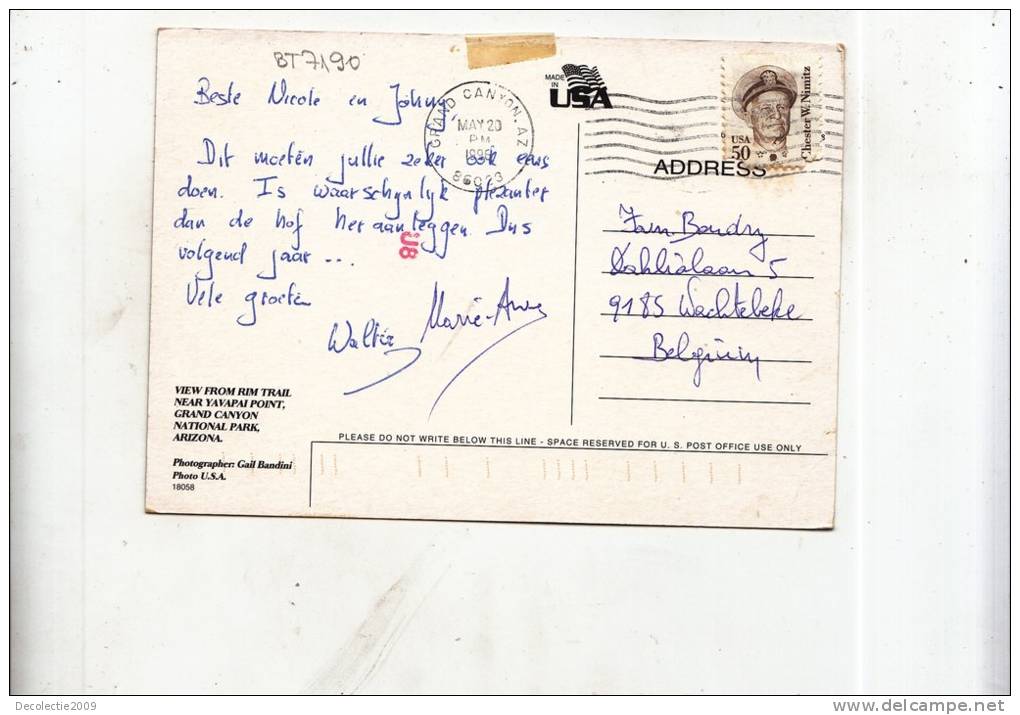 BT7190
Beste Nicole en Johny
Dit moeten jullie zeker ook eens
doen. Is waarschynlyk plezanter
dan de hof her aanleggen. Dus
volgend jaar ...
Vele groeten
Walter Marie-Anne
GRAND CANYON, AZ
MAY 20
PM
86023
MADE
IN
USA
USA
50
Chester W. Nimitz
ADDRESS
Fam. Baudry
Dahlialaan 5
9185 Wachtebeke
Belgium
U8
VIEW FROM RIM TRAIL
NEAR YAVAPAI POINT,
GRAND CANYON
NATIONAL PARK,
ARIZONA.
Photographer: Gail Bandini
Photo U.S.A.
18058
PLEASE DO NOT WRITE BELOW THIS LINE - SPACE RESERVED FOR U. S. POST OFFICE USE ONLY
Decolectie2009
www.delcampe.net